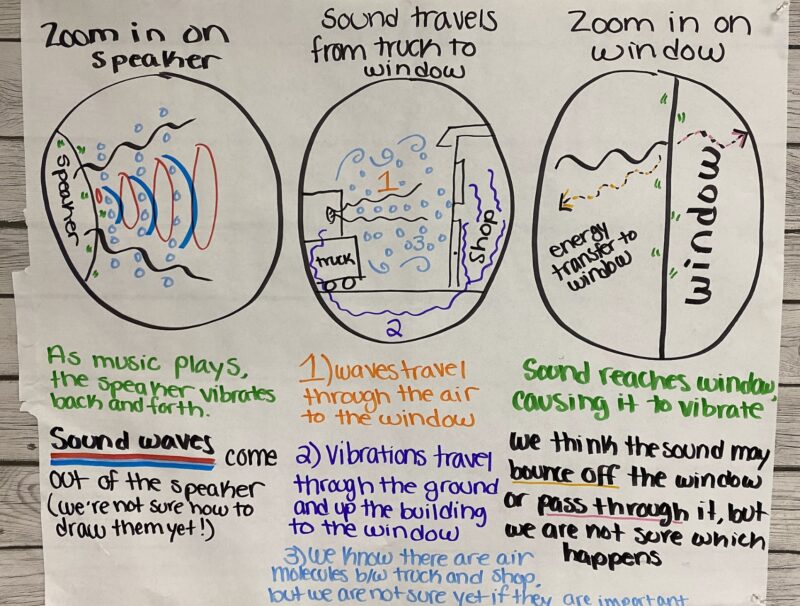 Zoom in on
speaker
speaker
As music plays,
the speaker vibrates
back and forth.
Sound waves come
out of the speaker
(we're not sure how to
draw them yet!)
Sound travels
from truck to
window
1
3
truck
shop
2
1) waves travel
through the air
to the window
2) Vibrations travel
through the ground
and up the building
to the window
3) we know there are air
molecules b/w truck and shop,
but we are not sure yet if they are important
Zoom in on
window
energy
transfer to
window
window
Sound reaches window,
causing it to vibrate
we think the sound may
bounce off the window
or pass through it, but
we are not sure which
happens